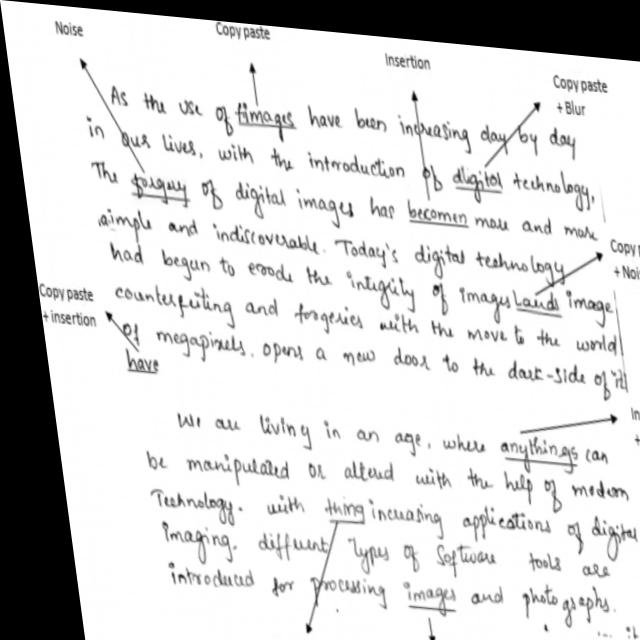 Noise
Copy paste
Insertion
Copy paste
+ Blur
As the use of timages have been increasing day by day
in our lives, with the introduction of dligital technology.
The forgery of digital images has becomen more and more
simple and indiscoverable. Today's digital technology
Copy
had begun to erode the integrity of images Lands image
Copy paste
+ insertion
counterfeiting and forgeries with the move to the world
of megapixels, opens a new door to the dark-side of it
have
We are living in an age, where anythings can
be manipulated or altered with the help of modern
Technology. with thing increasing applications of digital
imaging, different Types of Software tools are
introduced for processing images and photographs.